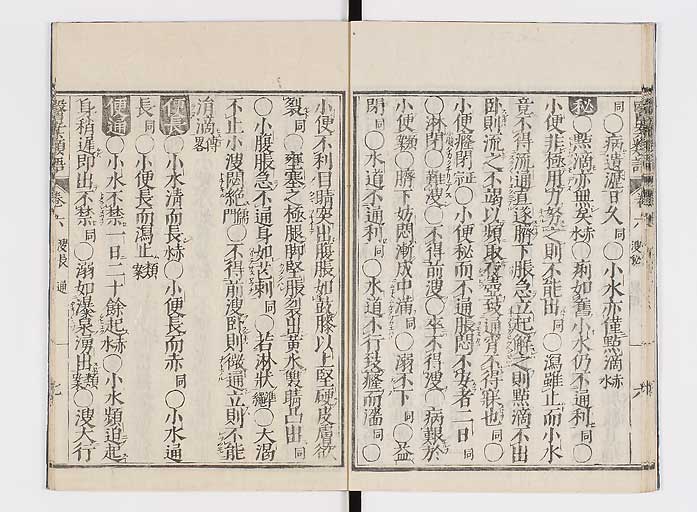 同○病遺瀝日久同○小水亦僅點滴赤水
秘 點滴亦無矣赤水○痢如舊小水仍不通利同○
小便非極用力努之則不能出同○瀉雖止而小水
竟不得流通直逐臍下脹急立起解之則點滴不出
臥則流之不竭以頻取夜壺接通宵不得寐也同○
小便癃閉證正○小便秘而不通脹悶不安者二日同
○淋閉○難溲○不得前溲○卒不得溲○病艱於
小便類案○臍下妨悶漸成中滿同○溺不下同○益
閉同○水道不通利同○水道不行技癃而瀋同○
小便不利目睛突出腹脹如鼓膝以上堅硬皮膚欲
裂同○壅塞之極腿脚堅脹裂出黃水雙睛凸出同
○小腹脹急不通身如芒刺同○若淋狀準繩○大渴
不止小溲閟絕儒門○不得前溲臥則微通立則不能
涓滴傳畧
便長○小水清而長赤水○小便長而赤同○小水通
長同○小便長而瀉止類案
便通○小水不禁一日二十餘起赤水○小水頻迫起
身稍遲即出不禁同○溺如瀑泉湧出類案○溲大行
醫案類語 卷六 溲長 通